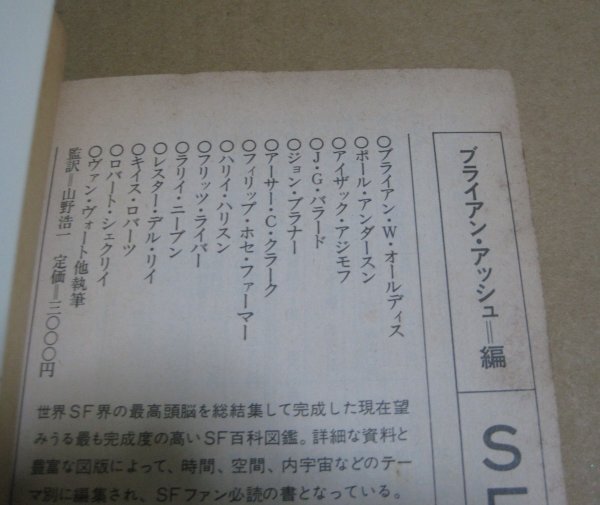 ブライアン・アッシュ=編
SF
〇ブライアン・W・オールディス
〇ポール・アンダースン
〇アイザック・アジモフ
〇J・G・バラード
〇ジョン・ブラナー
〇アーサー・C・クラーク
〇フィリップ・ホセ・ファーマー
〇ハリイ・ハリスン
〇フリッツ・ライバー
〇ラリイ・ニーブン
〇レスター・デル・リイ
〇キイス・ロバーツ
〇ロバート・シェクリイ
〇ヴァン・ヴォート他執筆
監訳=山野浩一 定価=三〇〇〇円
世界SF界の最高頭脳を総結集して完成した現在望
みうる最も完成度の高いSF百科図鑑。詳細な資料と
豊富な図版によって、時間、空間、内宇宙などのテー
マ別に編集され、SFファン必読の書となっている。